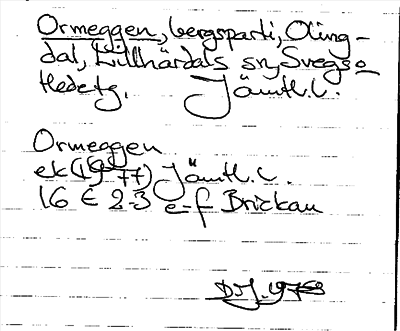 Ormeggen, bergsparti, Oling-
dal, Lillhärdals sn, Svegs o
Hede tg. Jämtl. L.
Ormeggen
ek (1977) Jämtl. L.
16 E 2-3 e-f Brickan